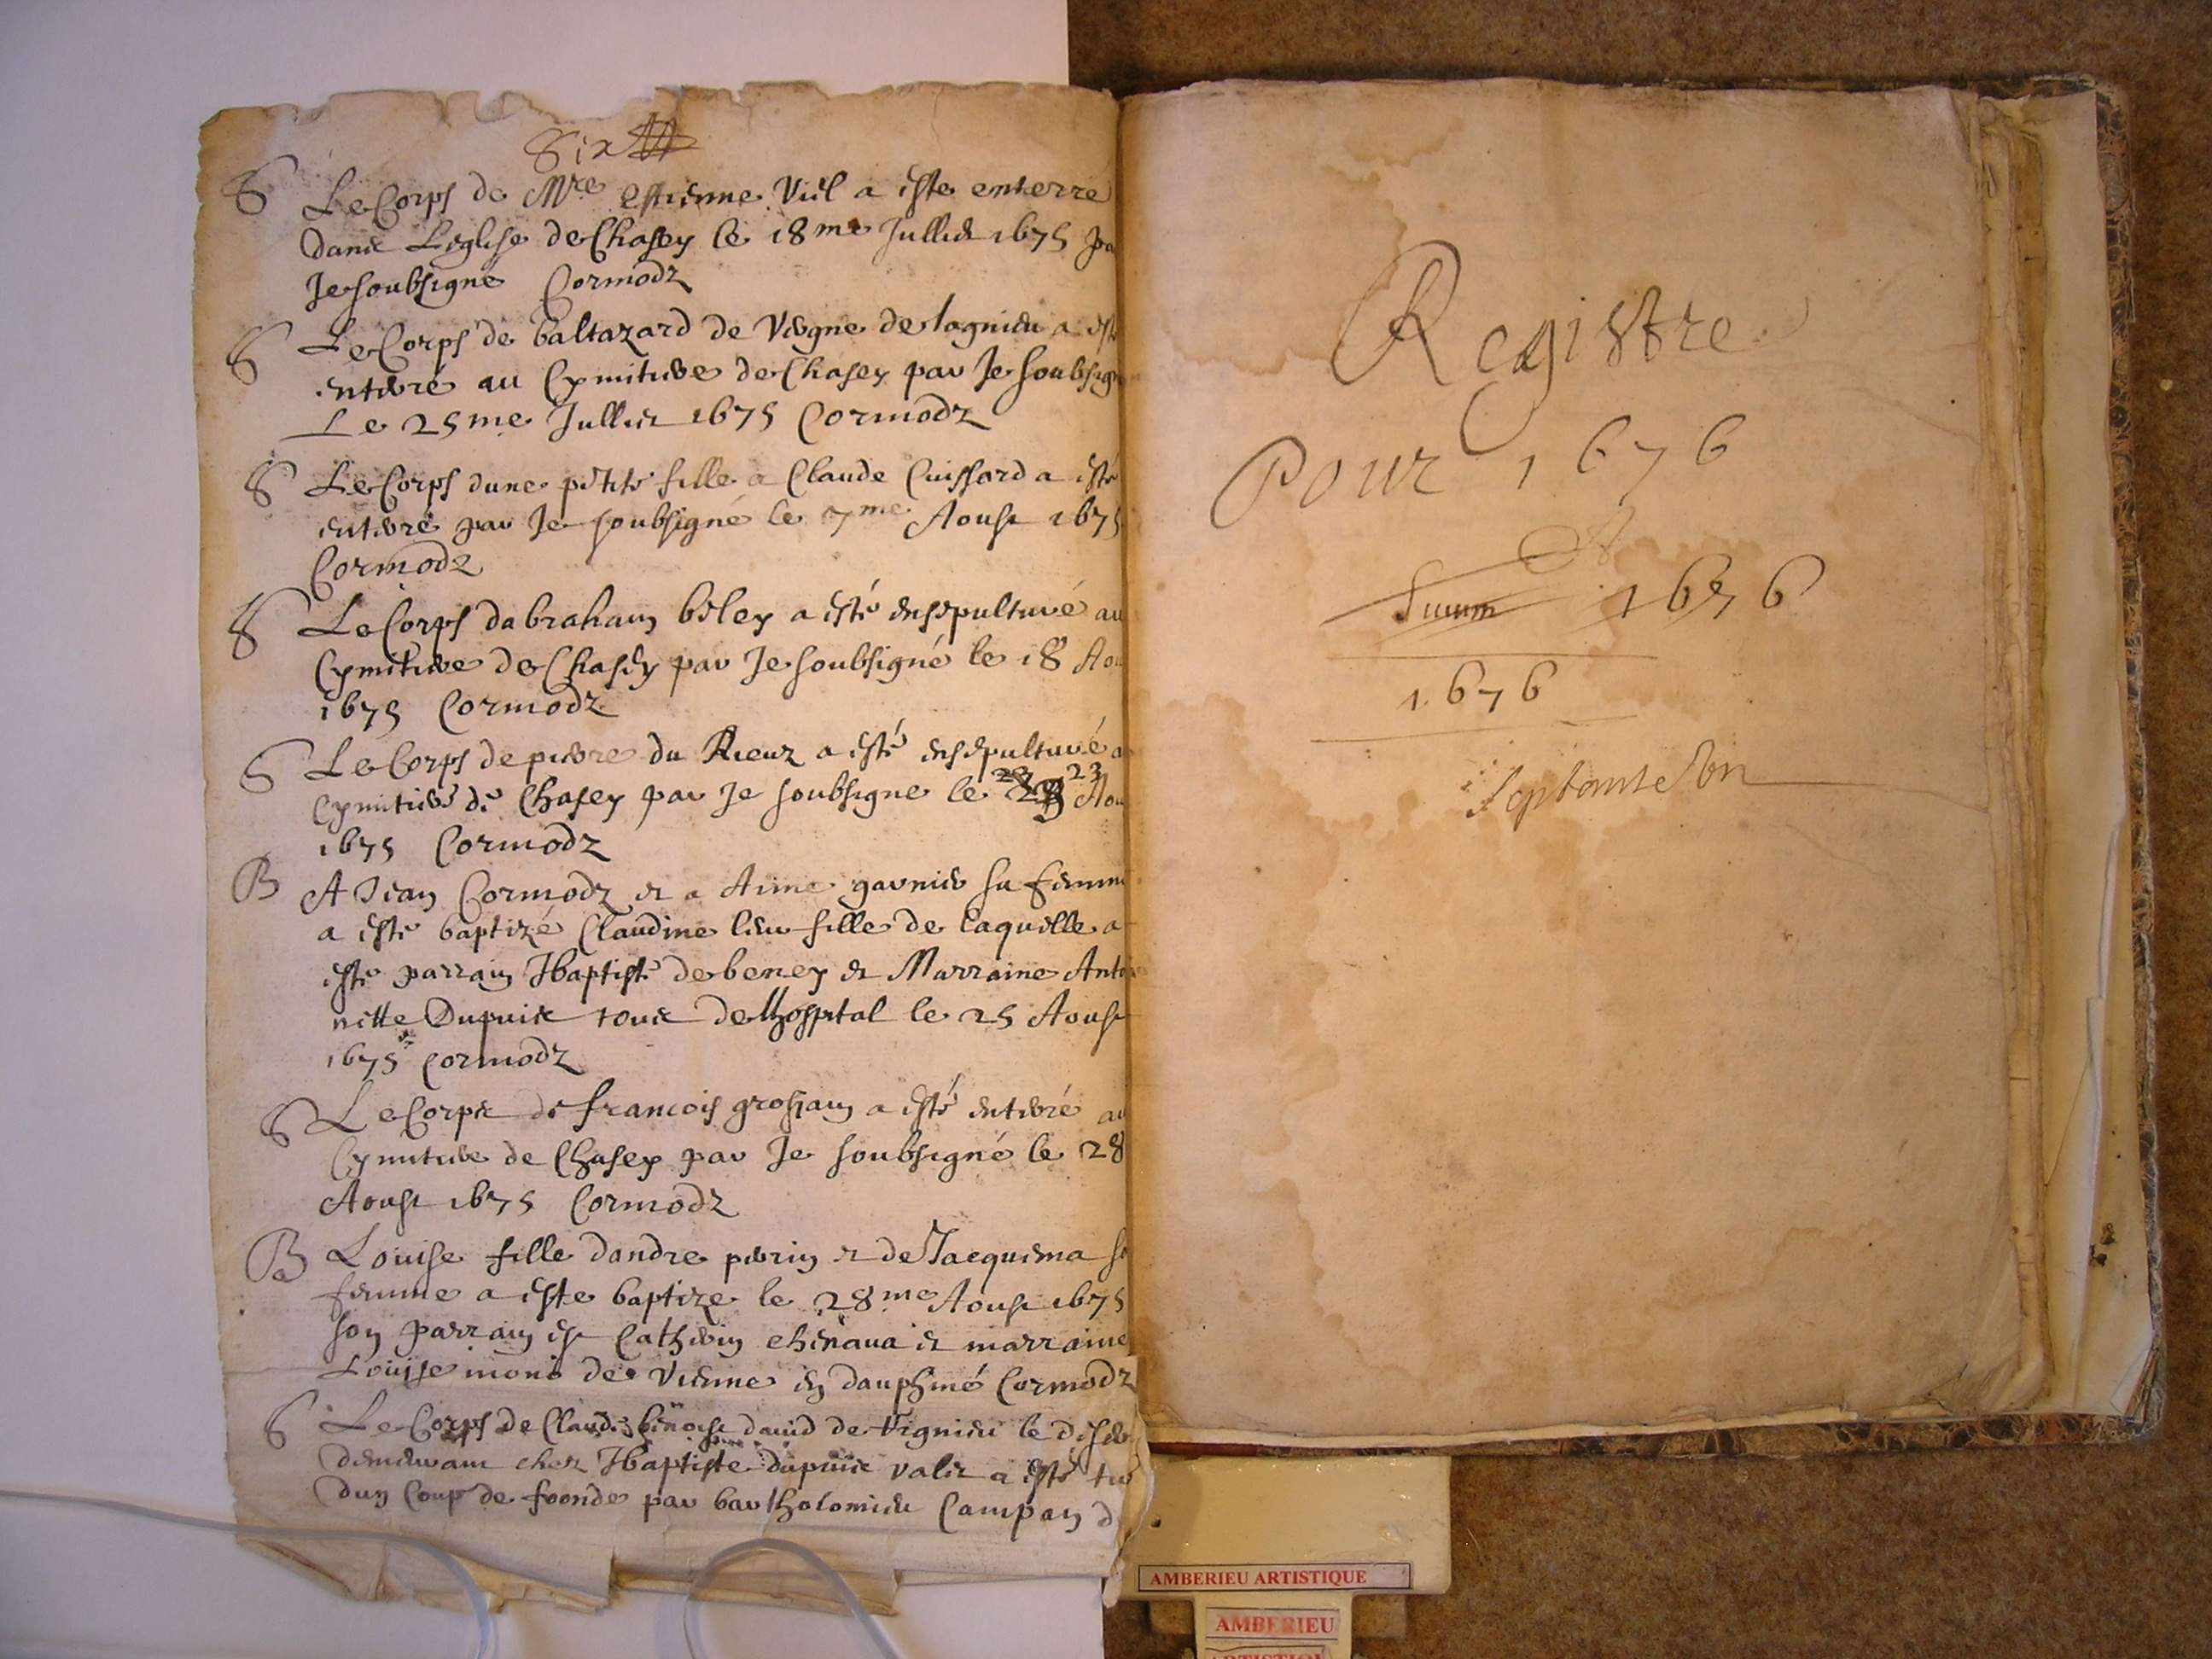 Six
S Le Corps de Mre estienne Viel a este enterré
dans Leglise de Chasey le 18me Jullet 1675 pa
Je soubsigné Cormodz
S Le Corps de baltazard de Vergne de lagnieu a est
enterré au Cymitiere de Chasey par Je soubsign
Le 25me Jullet 1675 Cormodz
S Le Corps dune petite fille a Claude Cuissard a esté
enterré par Je soubsigné le 7me Aoust 1675
Cormodz
S Le Corps dabraham beley a esté ensepulturé au
Cymitiere de Chasey par Je soubsigné le 18 Aou
1675 Cormodz
S Le Corps de pierre du Rieux a esté ensepulturé a
Cymitiere de Chasey par Je soubsigne le 23 Aou
1675 Cormodz
B A Jean Cormodz et a Aime garnier sa femme
a esté baptizé Claudine leur fille de laquelle a
esté parrain Jbaptiste de beney et Marraine Antoi
nette Dupuis tous de Lhospital le 25 Aoust
1675 Cormodz
S Le Corps de francois grosjean a esté enterré au
Cymitiere de Chasey par Je soubsigné le 28
Aoust 1675 Cormodz
B Louise fille dandre perrin et de Jacquema sa
femme a este baptize le 28me Aoust 1675
son parrain est Catherin et marraine
Louise de Vienne en dauphiné Cormodz
S Le Corps de Claude benoist david de Vignieu le
demeurant chez Jbaptiste dupuis valet a esté tué
dun Coup de fronde par bartholomieu Campan d
Registre
Pour 1676
1676
1676
Septante
AMBERIEU ARTISTIQUE
AMBERIEU
ARTISTIQU